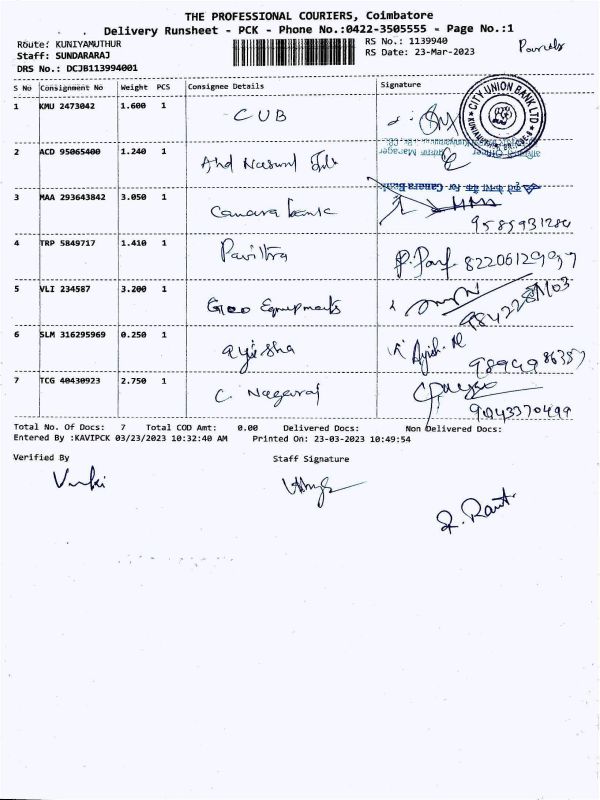 THE PROFESSIONAL COURIERS, Coimbatore
Delivery Runsheet - PCK - Phone No.:0422-3505555 - Page No.:1
Route: KUNIYAMUTHUR
RS No.: 1139940
Staff: SUNDARARAJ
RS Date: 23-Mar-2023
DRS No.: DCJB113994001
S No Consignment No Weight PCS Consignee Details Signature
1 KMU 2473042 1.600 1 CUB
CITY UNION BANK LTD.
2 ACD 95065400 1.240 1
Manager
3 MAA 293643842 3.050 1 Canara bank
For Canara Bank
9585931284
4 TRP 5849717 1.410 1 Pavithra
5 VLI 234587 3.200 1 Geo Equipments
6 SLM 316295969 0.250 1 ayisha
7 TCG 40430923 2.750 1 C. Nagaraj
9043370499
Total No. Of Docs: 7 Total COD Amt: 0.00 Delivered Docs: Non Delivered Docs:
Entered By :KAVIPCK 03/23/2023 10:32:40 AM Printed On: 23-03-2023 10:49:54
Verified By Staff Signature